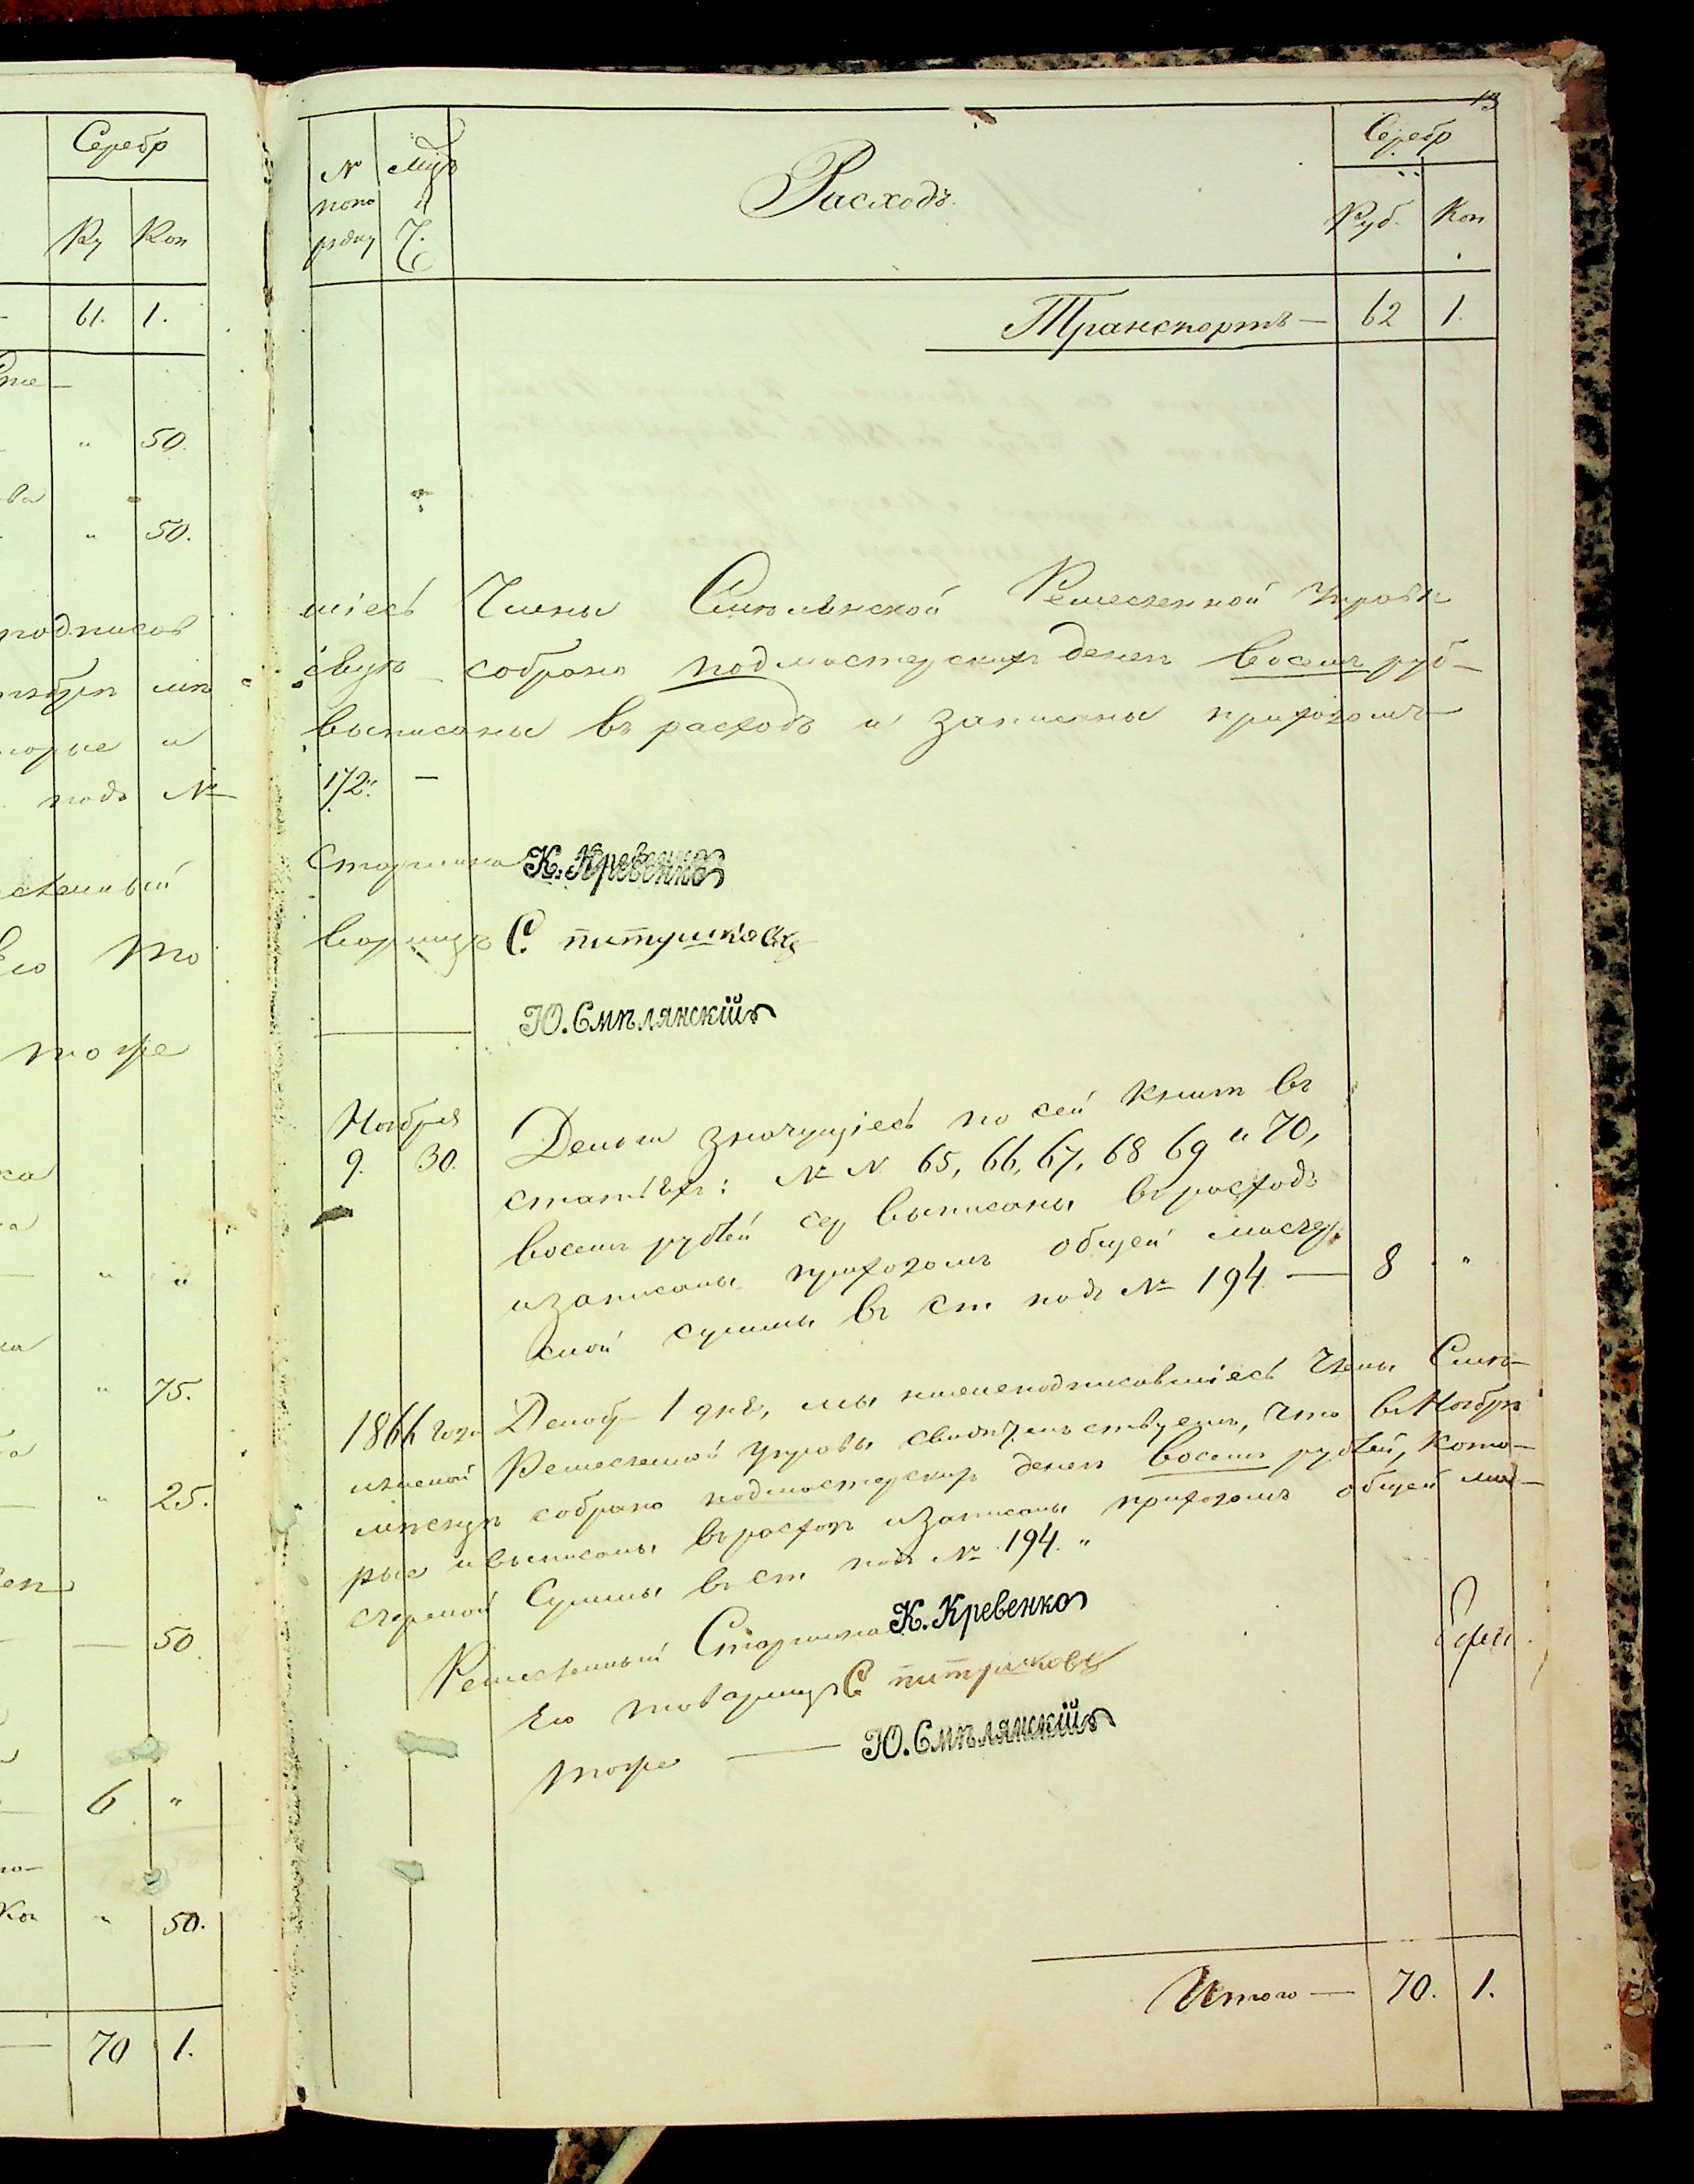 Серебр
Ру Коп
61. 1.
" 50.
ва
" 50.
подписав
торые и
подъ №
Его то
тоже
" "
" 75.
" 25.
50
6 "
Коп " 50.
70 1.
13
№ попо рядку
Мцъ и Ч.
Расходъ.
Серебр
Руб. Коп
Транспортъ — 62 1.
шіесь Члены Смѣлянской Ремесленной Управы
собрано подмастерскихъ денегъ восемь руб—
выписаны въ расходъ и записаны приходомъ
172. —
Старшина К. Кревенко
С. питушковск
Ю. Смѣлянскій
Ноября
9. 30. Деньги значущіесь по сей книгѣ въ
статьяхъ: № № 65, 66, 67, 68 69 и 70,
восемь рублей сер выписаны въ расходъ
и записаны приходомъ общей
суммы въ ст подъ № 194 — 8 "
1866 года Декабр 1 дня, мы нижеподписавшіесь Члены Смѣ—
лянской Ремесленной Управы свидѣтельствуемъ, что въ Ноябрѣ
мѣсяцѣ собрано подмастерскихъ денегъ восемь рублей, кото—
рые и выписаны въ расходъ и записаны приходомъ общей
суммы въ ст подъ № 194. "
Ремесленный Старшина К. Кревенко
Его товарищъ С питушковск
тоже — Ю. Смѣлянскій
Итого — 70. 1.